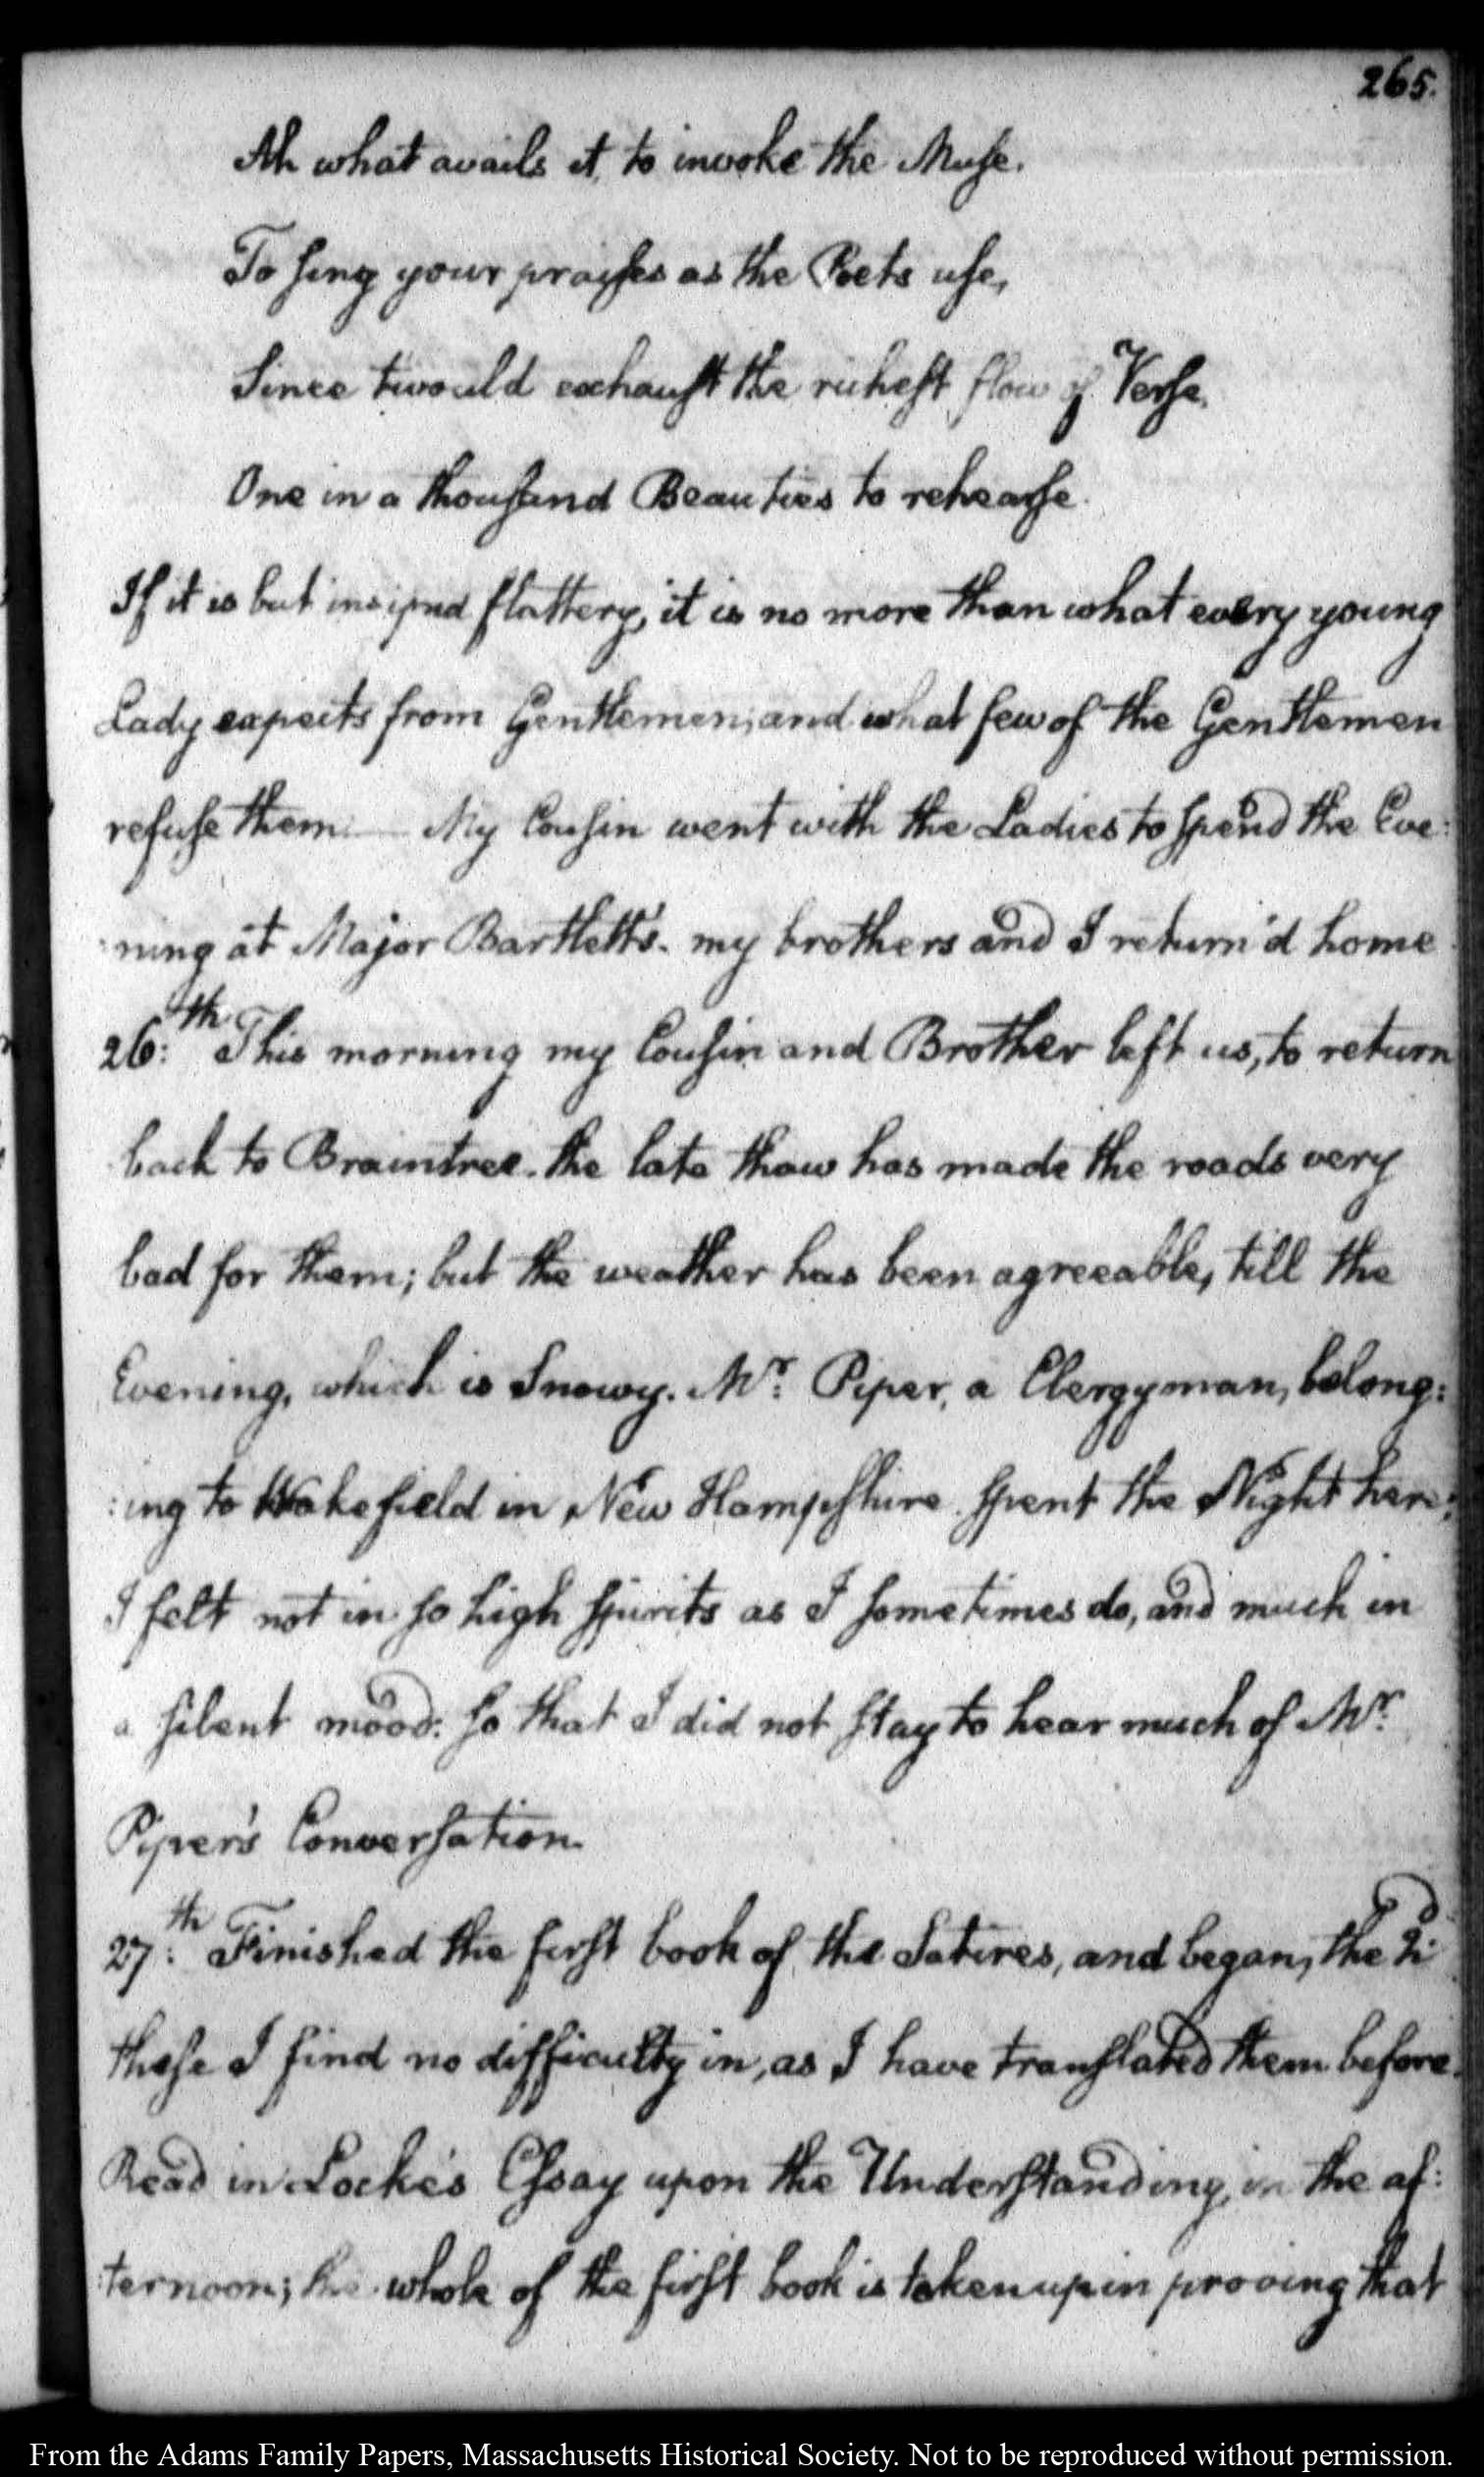 265.
Ah what avails it, to invoke the Muse.
To sing your praises as the Poets use,
Since twould exhaust the richest flow of Verse,
One in a thousand Beauties to rehearse.
If it is but insipid flattery, it is no more than what every young
Lady expects from Gentlemen; and what few of the Gentlemen
refuse them. — My Cousin went with the Ladies to spend the Eve:
:ning at Major Bartlett's. my brothers and I return'd home
26:th This morning my Cousin and Brother left us, to return
back to Braintree. the late thaw has made the roads very
bad for them; but the weather has been agreeable, till the
Evening, which is Snowy. Mr: Piper, a Clergyman, belong:
:ing to Wakefield in New Hampshire spent the Night here:
I felt not in so high spirits as I sometimes do, and much in
a silent mood: so that I did not stay to hear much of Mr:
Piper's Conversation.
27:th Finished the first book of the Satires, and began, the 2:d
these I find no difficulty in, as I have translated them before.
Read in Locke's Essay upon the Understanding, in the af:
:ternoon; the whole of the first book is taken up in proving that
From the Adams Family Papers, Massachusetts Historical Society. Not to be reproduced without permission.